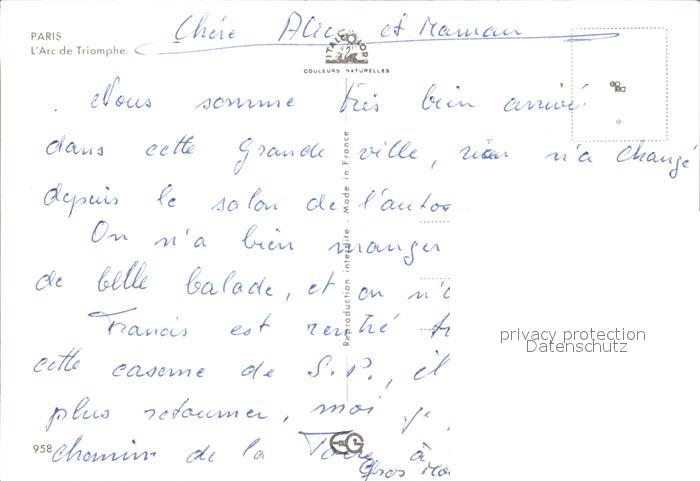 Chère Alice et Maman
PARIS
L'Arc de Triomphe.
ITALCOLOR
COULEURS NATURELLES
Nous somme très bien arrivé
dans cette grande ville, rien n'a changé
depuis le salon de l'auto
On n'a bien manger
de belle balade, et on n'
Francis est rentré
cette caserne de S.P., il
plus retourner, moi je
958 chemin de la à
Gros
Reproduction interdite - Made in France
privacy protection
Datenschutz